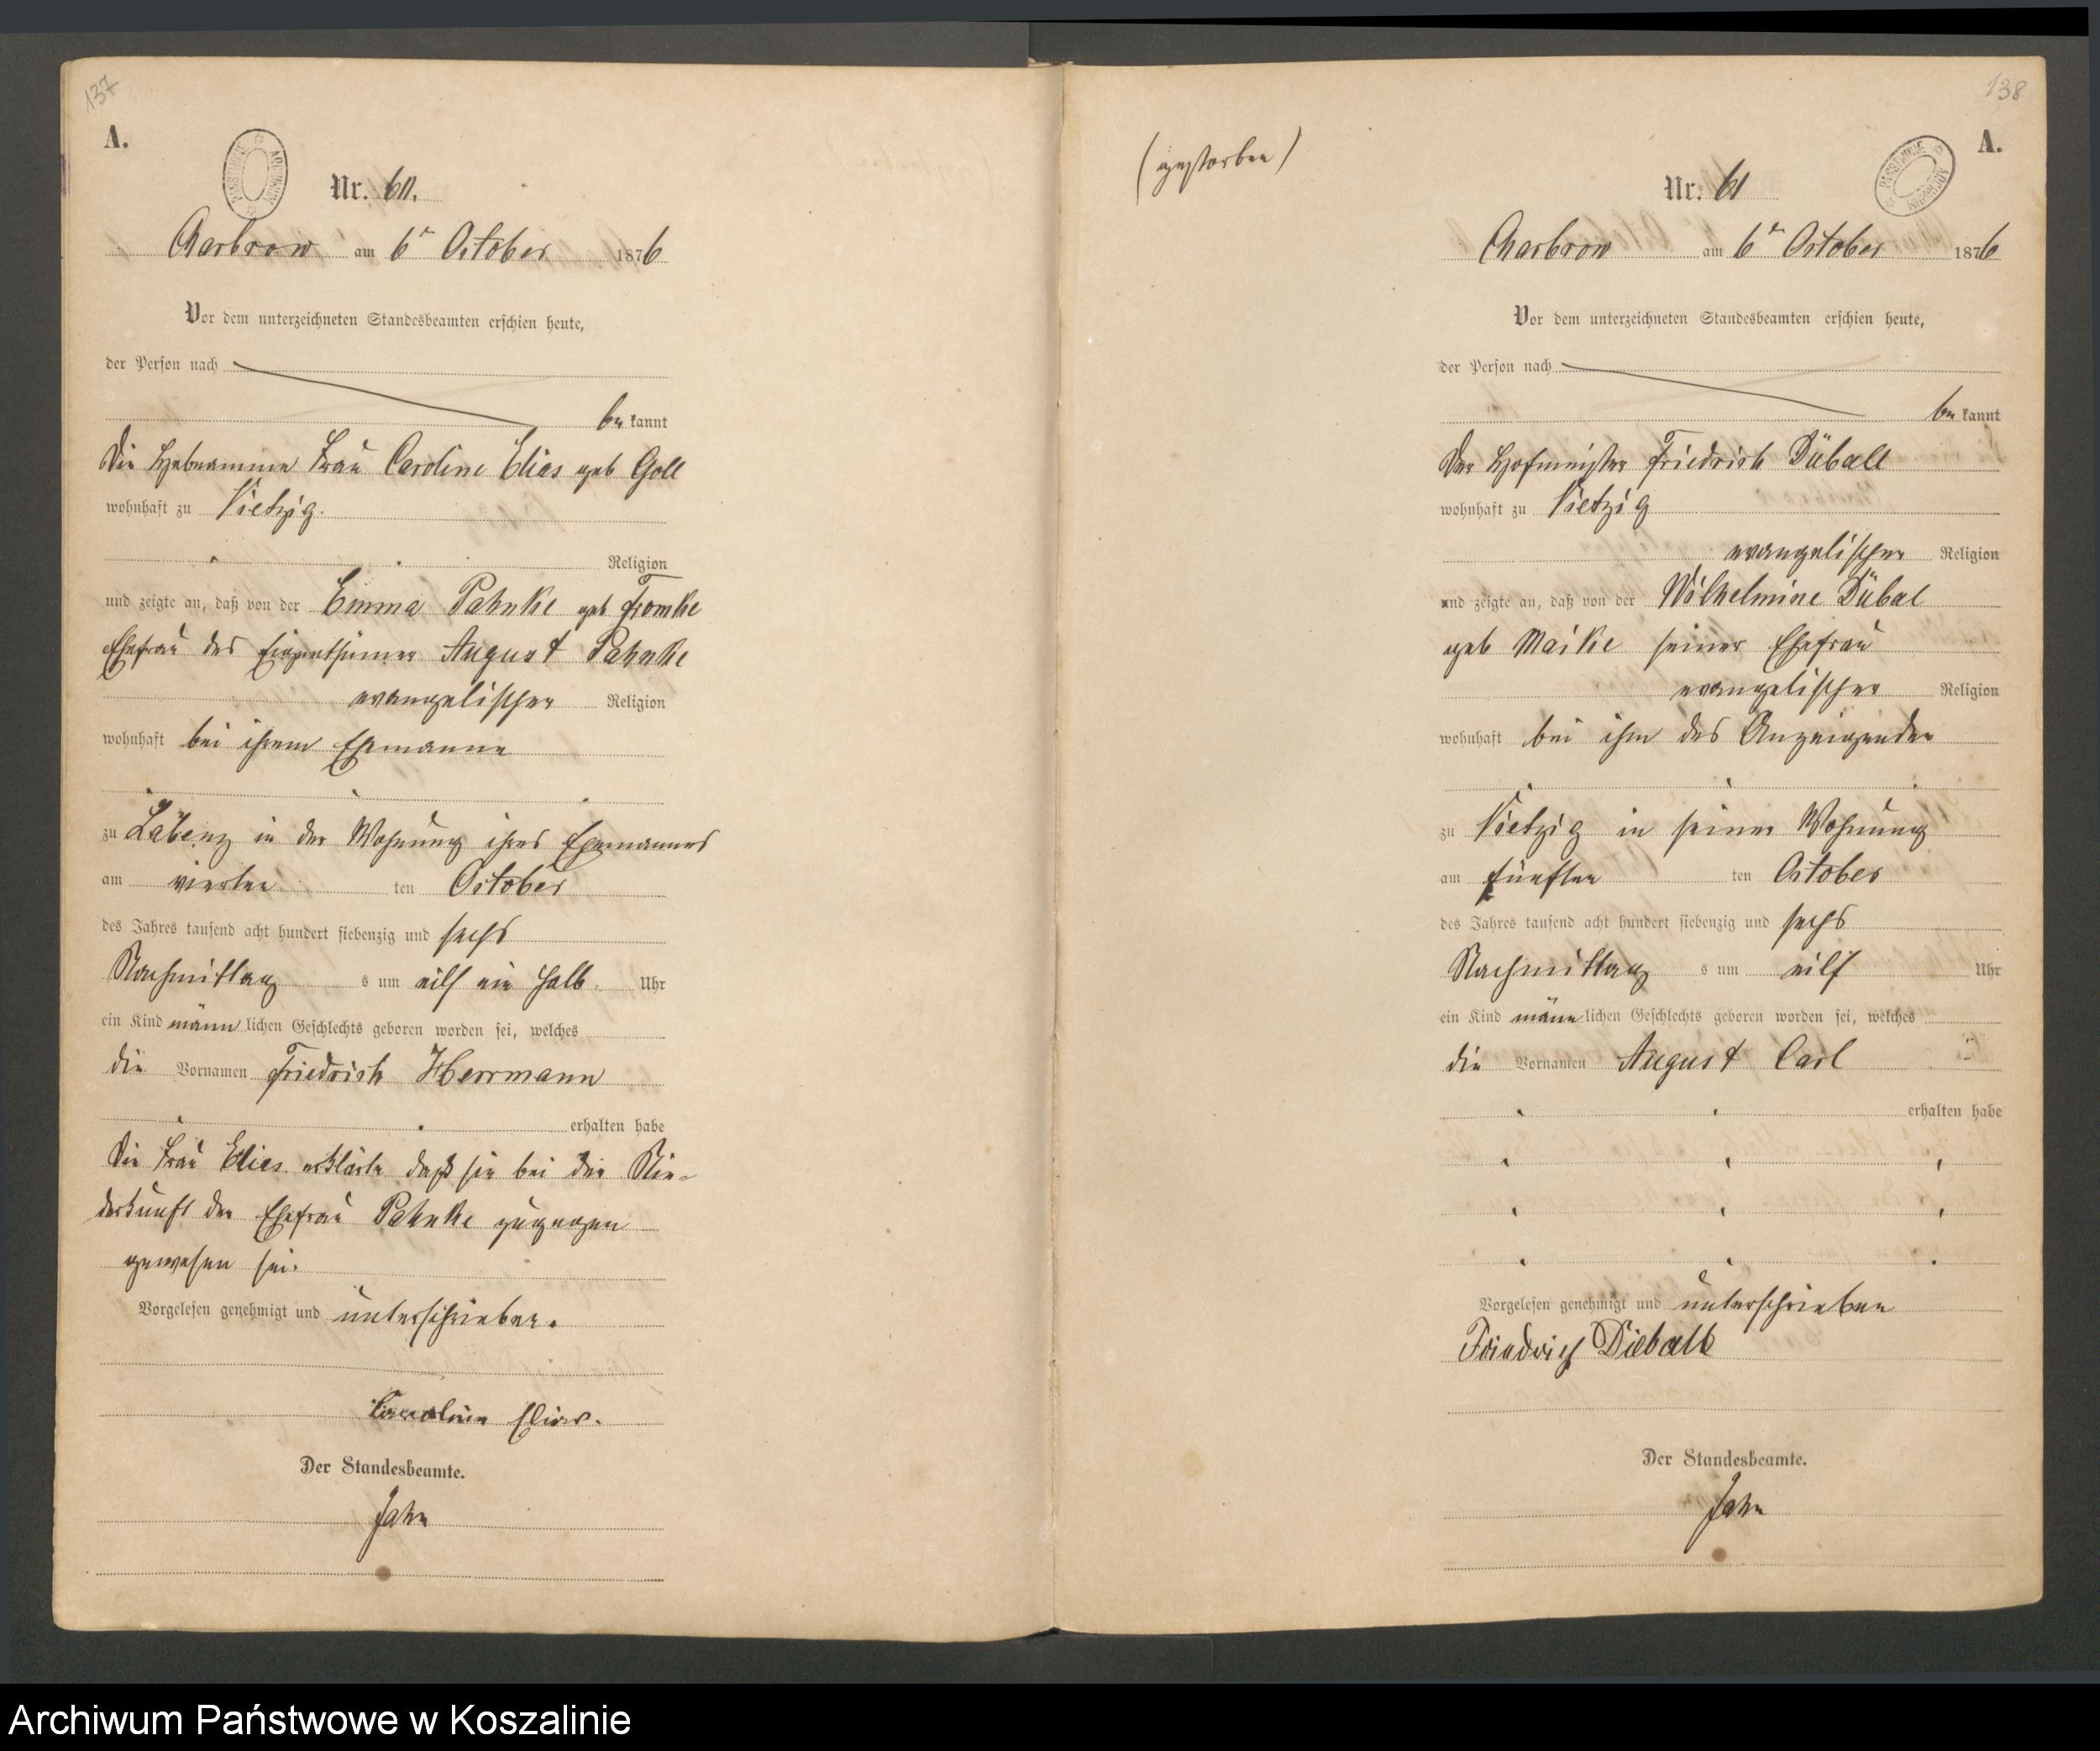 137
A.
Nr. 60.
Charbrow am 6ᵗ October 1876
Vor dem unterzeichneten Standesbeamten erschien heute,
der Person nach
be kannt
Die Hebeamme Frau Caroline Elias geb Goll
wohnhaft zu Vietzig.
Religion
und zeigte an, daß von der Emma Pahnke geb Fromke
Ehefrau des Eigenthümer August Pahnke
evangelischer Religion
wohnhaft bei ihrem Ehemanne
zu Labenz in der Wohnung ihres Ehemannes
am vierten ten October
des Jahres tausend acht hundert siebenzig und sechs
Nachmittag s um eilf ein halb. Uhr
ein Kind männ lichen Geschlechts geboren worden sei, welches
die Vornamen Friedrich Herrmann
erhalten habe
Die Frau Elias erklärte daß sie bei der Nie-
derkunft der Ehefrau Pahnke zugegen
gewesen sei.
Vorgelesen genehmigt und unterschrieben.
Caroline Elias.
Der Standesbeamte.
Jahn
138
A.
(gestorben)
Nr. 61
Charbrow am 6ᵗ October 1876
Vor dem unterzeichneten Standesbeamten erschien heute,
der Person nach
be kannt
Der Hofmeister Friedrich Düball
wohnhaft zu Vietzig
evangelischer Religion
und zeigte an, daß von der Wilhelmine Dübal
geb Maike seiner Ehefrau
evangelischer Religion
wohnhaft bei ihm des Anzeigenden
zu Vietzig in seiner Wohnung
am fünften ten October
des Jahres tausend acht hundert siebenzig und sechs
Nachmittag s um eilf Uhr
ein Kind männ lichen Geschlechts geboren worden sei, welches
die Vornamen August Carl
erhalten habe
Vorgelesen genehmigt und unterschrieben
Friedrich Dieball
Der Standesbeamte.
Jahn
Archiwum Państwowe w Koszalinie